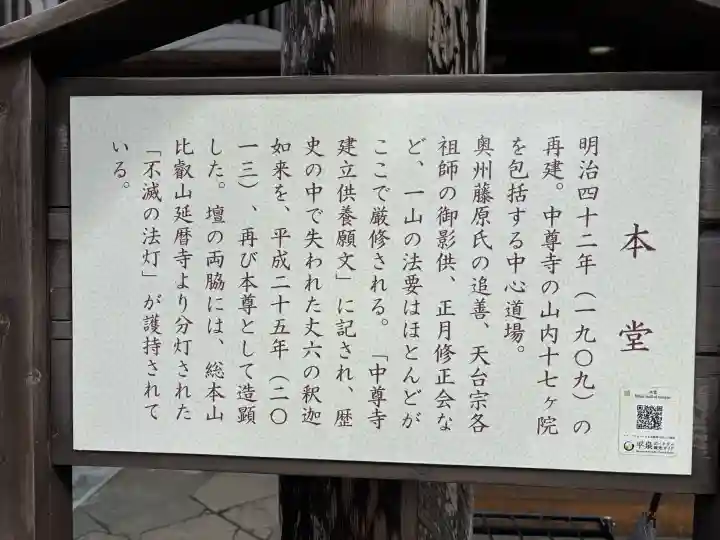 本堂
明治四十二年（一九〇九）の
再建。中尊寺の山内十七ヶ院
を包括する中心道場。
奥州藤原氏の追善、天台宗各
祖師の御影供、正月修正会な
ど、一山の法要はほとんどが
ここで厳修される。「中尊寺
建立供養願文」に記され、歴
史の中で失われた丈六の釈迦
如来を、平成二十五年（二〇
一三）、再び本尊として造顕
した。壇の両脇には、総本山
比叡山延暦寺より分灯された
「不滅の法灯」が護持されて
いる。
平泉